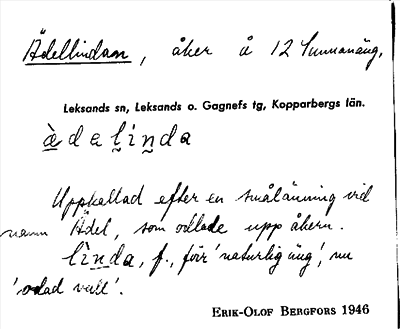 Ädellindan, åker å 12 Sunnanäng,
Leksands sn, Leksands o. Gagnefs tg, Kopparbergs län.
àdelìnda
Uppkallad efter en smålänning vid
namn Ädel, som odlade upp åkern.
lìnda, f., förr 'naturlig äng', nu
'odlad vall'.
ERIK-OLOF BERGFORS 1946